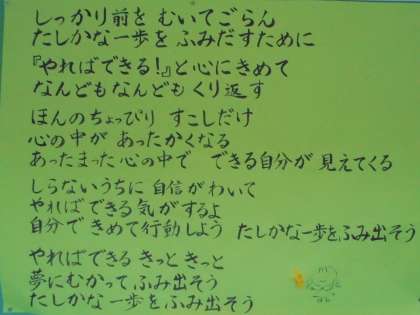 しっかり前を むいてごらん
たしかな一歩を ふみだすために
『やればできる!』と心にきめて
なんどもなんどもくり返す
ほんのちょっぴり すこしだけ
心の中が あったかくなる
あったまった心の中で できる自分が 見えてくる
しらないうちに 自信がわいて
やれば できる 気がするよ
自分で きめて行動しよう たしかな一歩をふみ出そう
やればできる きっと きっと
夢にむかって ふみ出そう
たしかな 一歩を ふみ出そう